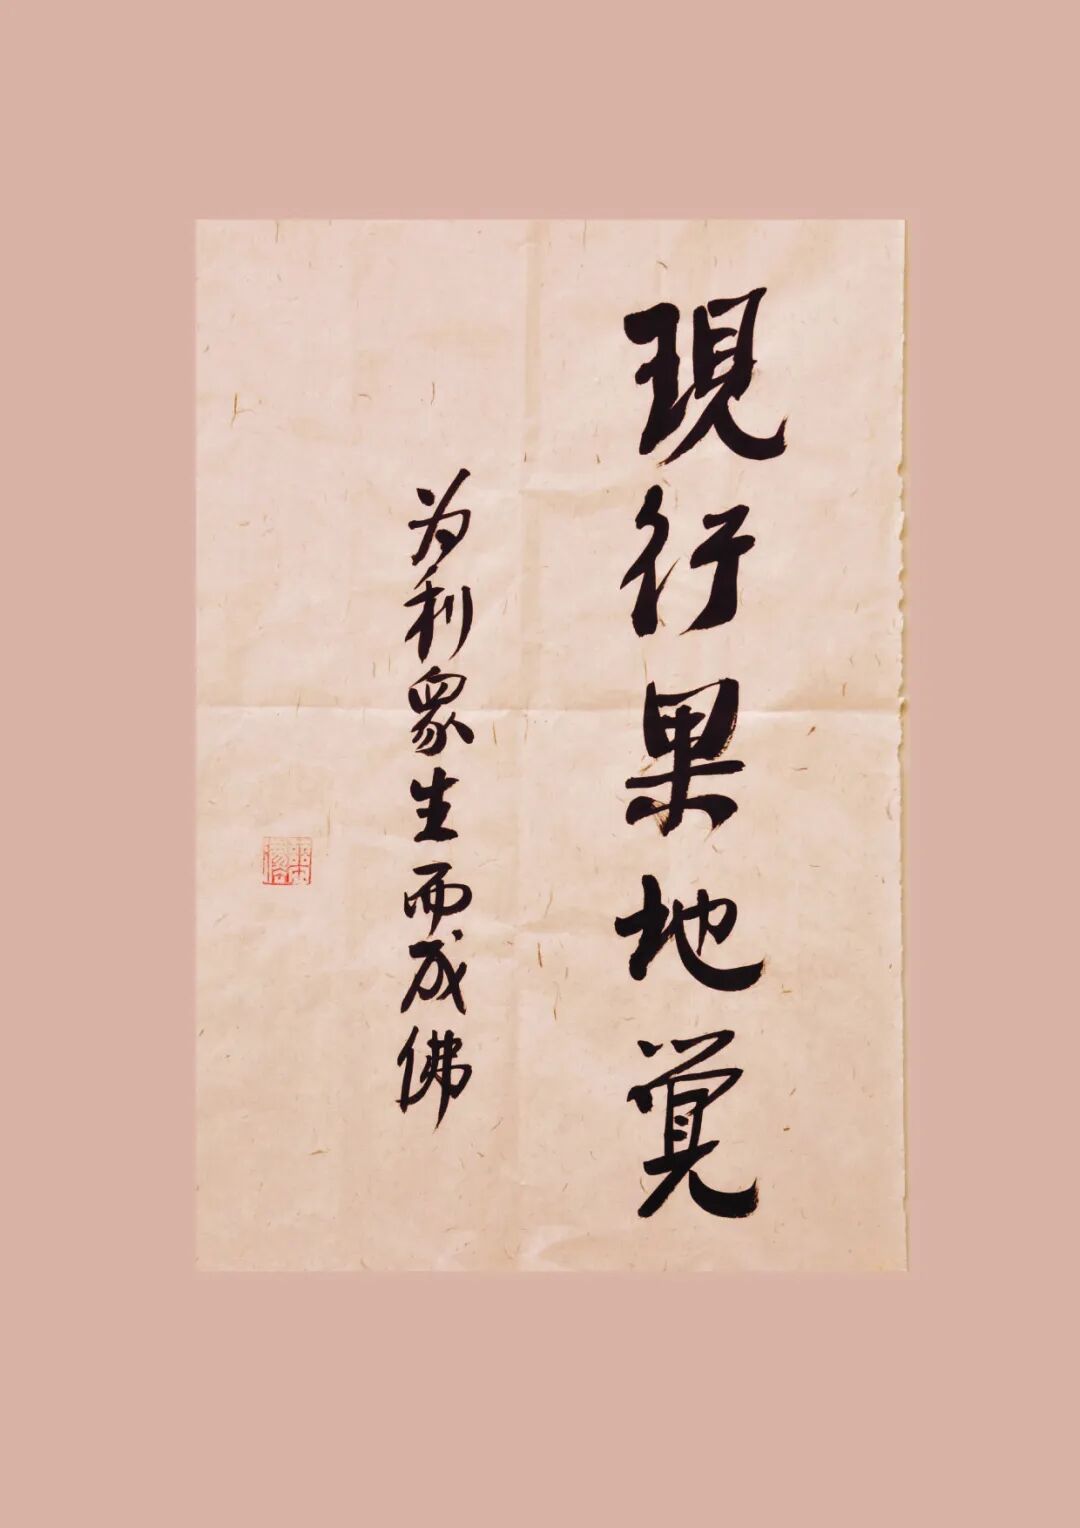 現行果地覚
为利眾生而成佛